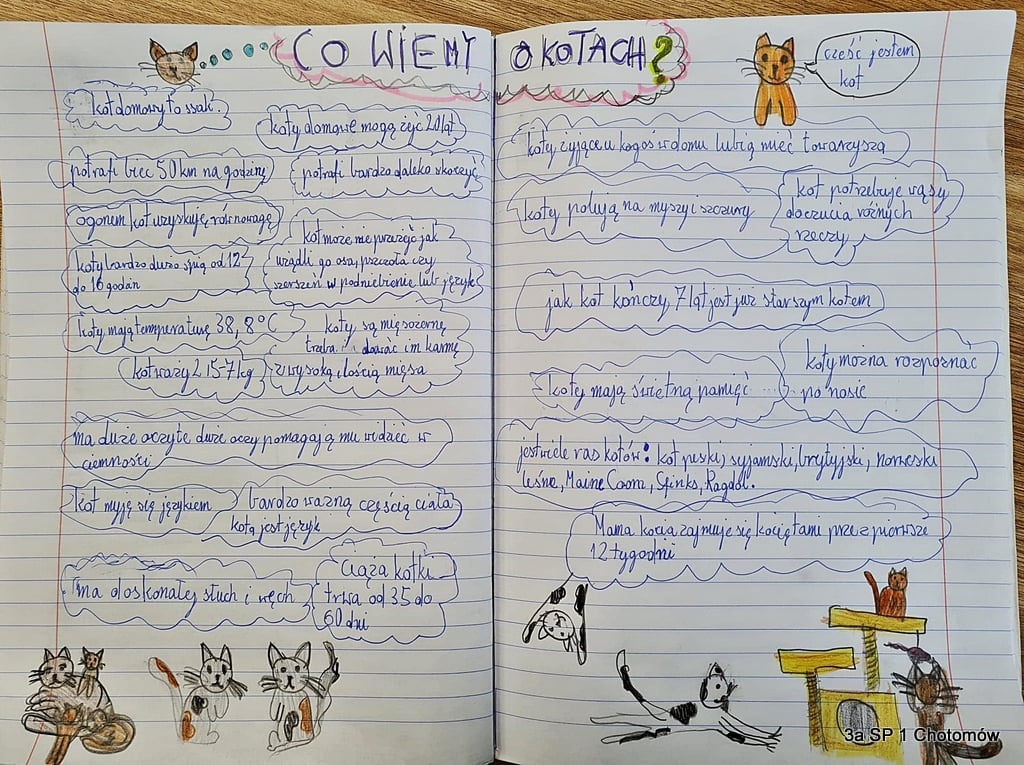 CO WIEMY O KOTACH?
cześć jestem
kot
kot domowy to ssak.
koty domowe mogą żyć 20 lat
potrafi biec 50 km na godzinę
potrafi bardzo daleko skoczyć
ogonem kot uzyskuję równowagę
kot może nie przeżyć jak
urządli go osa, pszczoła czy
szerszeń w podniebienie lub język
koty bardzo dużo śpią od 12
do 16 godzin
koty mają temperaturę 38,8°C
koty są mięsożerne
trzeba dawać im karmę
z wysoką ilością mięsa
kot waży 2,15-7 kg
ma duże oczy te duże oczy pomagają mu widzieć w
ciemności
kot myję się językiem
bardzo ważną częścią ciała
kota jest język
ma doskonałej słuch i węch
Ciąża kotki
trwa od 35 do
60 dni
koty żyjące u kogoś w domu lubią mieć towarzysza
koty polują na myszy i szczury
kot potrzebuje wąsy
do czucia różnych
rzeczy
jak kot kończy 7 lat jest już starszym kotem
koty mają świetną pamięć
koty można rozpoznać
po nosie
jest wiele ras kotów: kot perski, syjamski, brytyjski, norweski
leśne, Maine Coom, Sfinks, Ragdol.
Mama kocia zajmuje się kociętami przez pierwsze
12 tygodni
3a SP 1 Chotomów